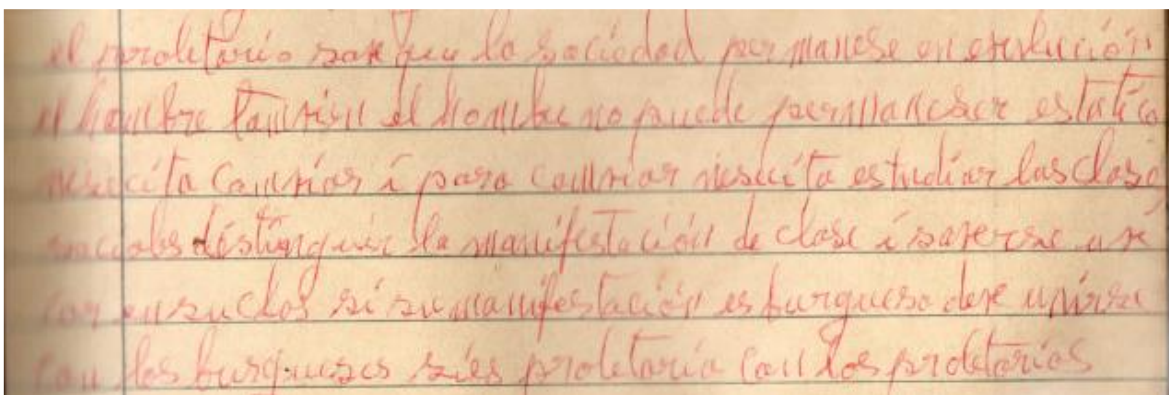 el proletario por que la sociedad permanese en evolución
el hombre tanvien el hombre no puede permaneser estatico
nesecita canviar i para canviar nesecita estudiar las clases
sociales distinguir la manifestación de clase i saverse uv
car en su clas si su manifestación es burguesa deve unirse
con los burgueses si es proletaria con los proletarios